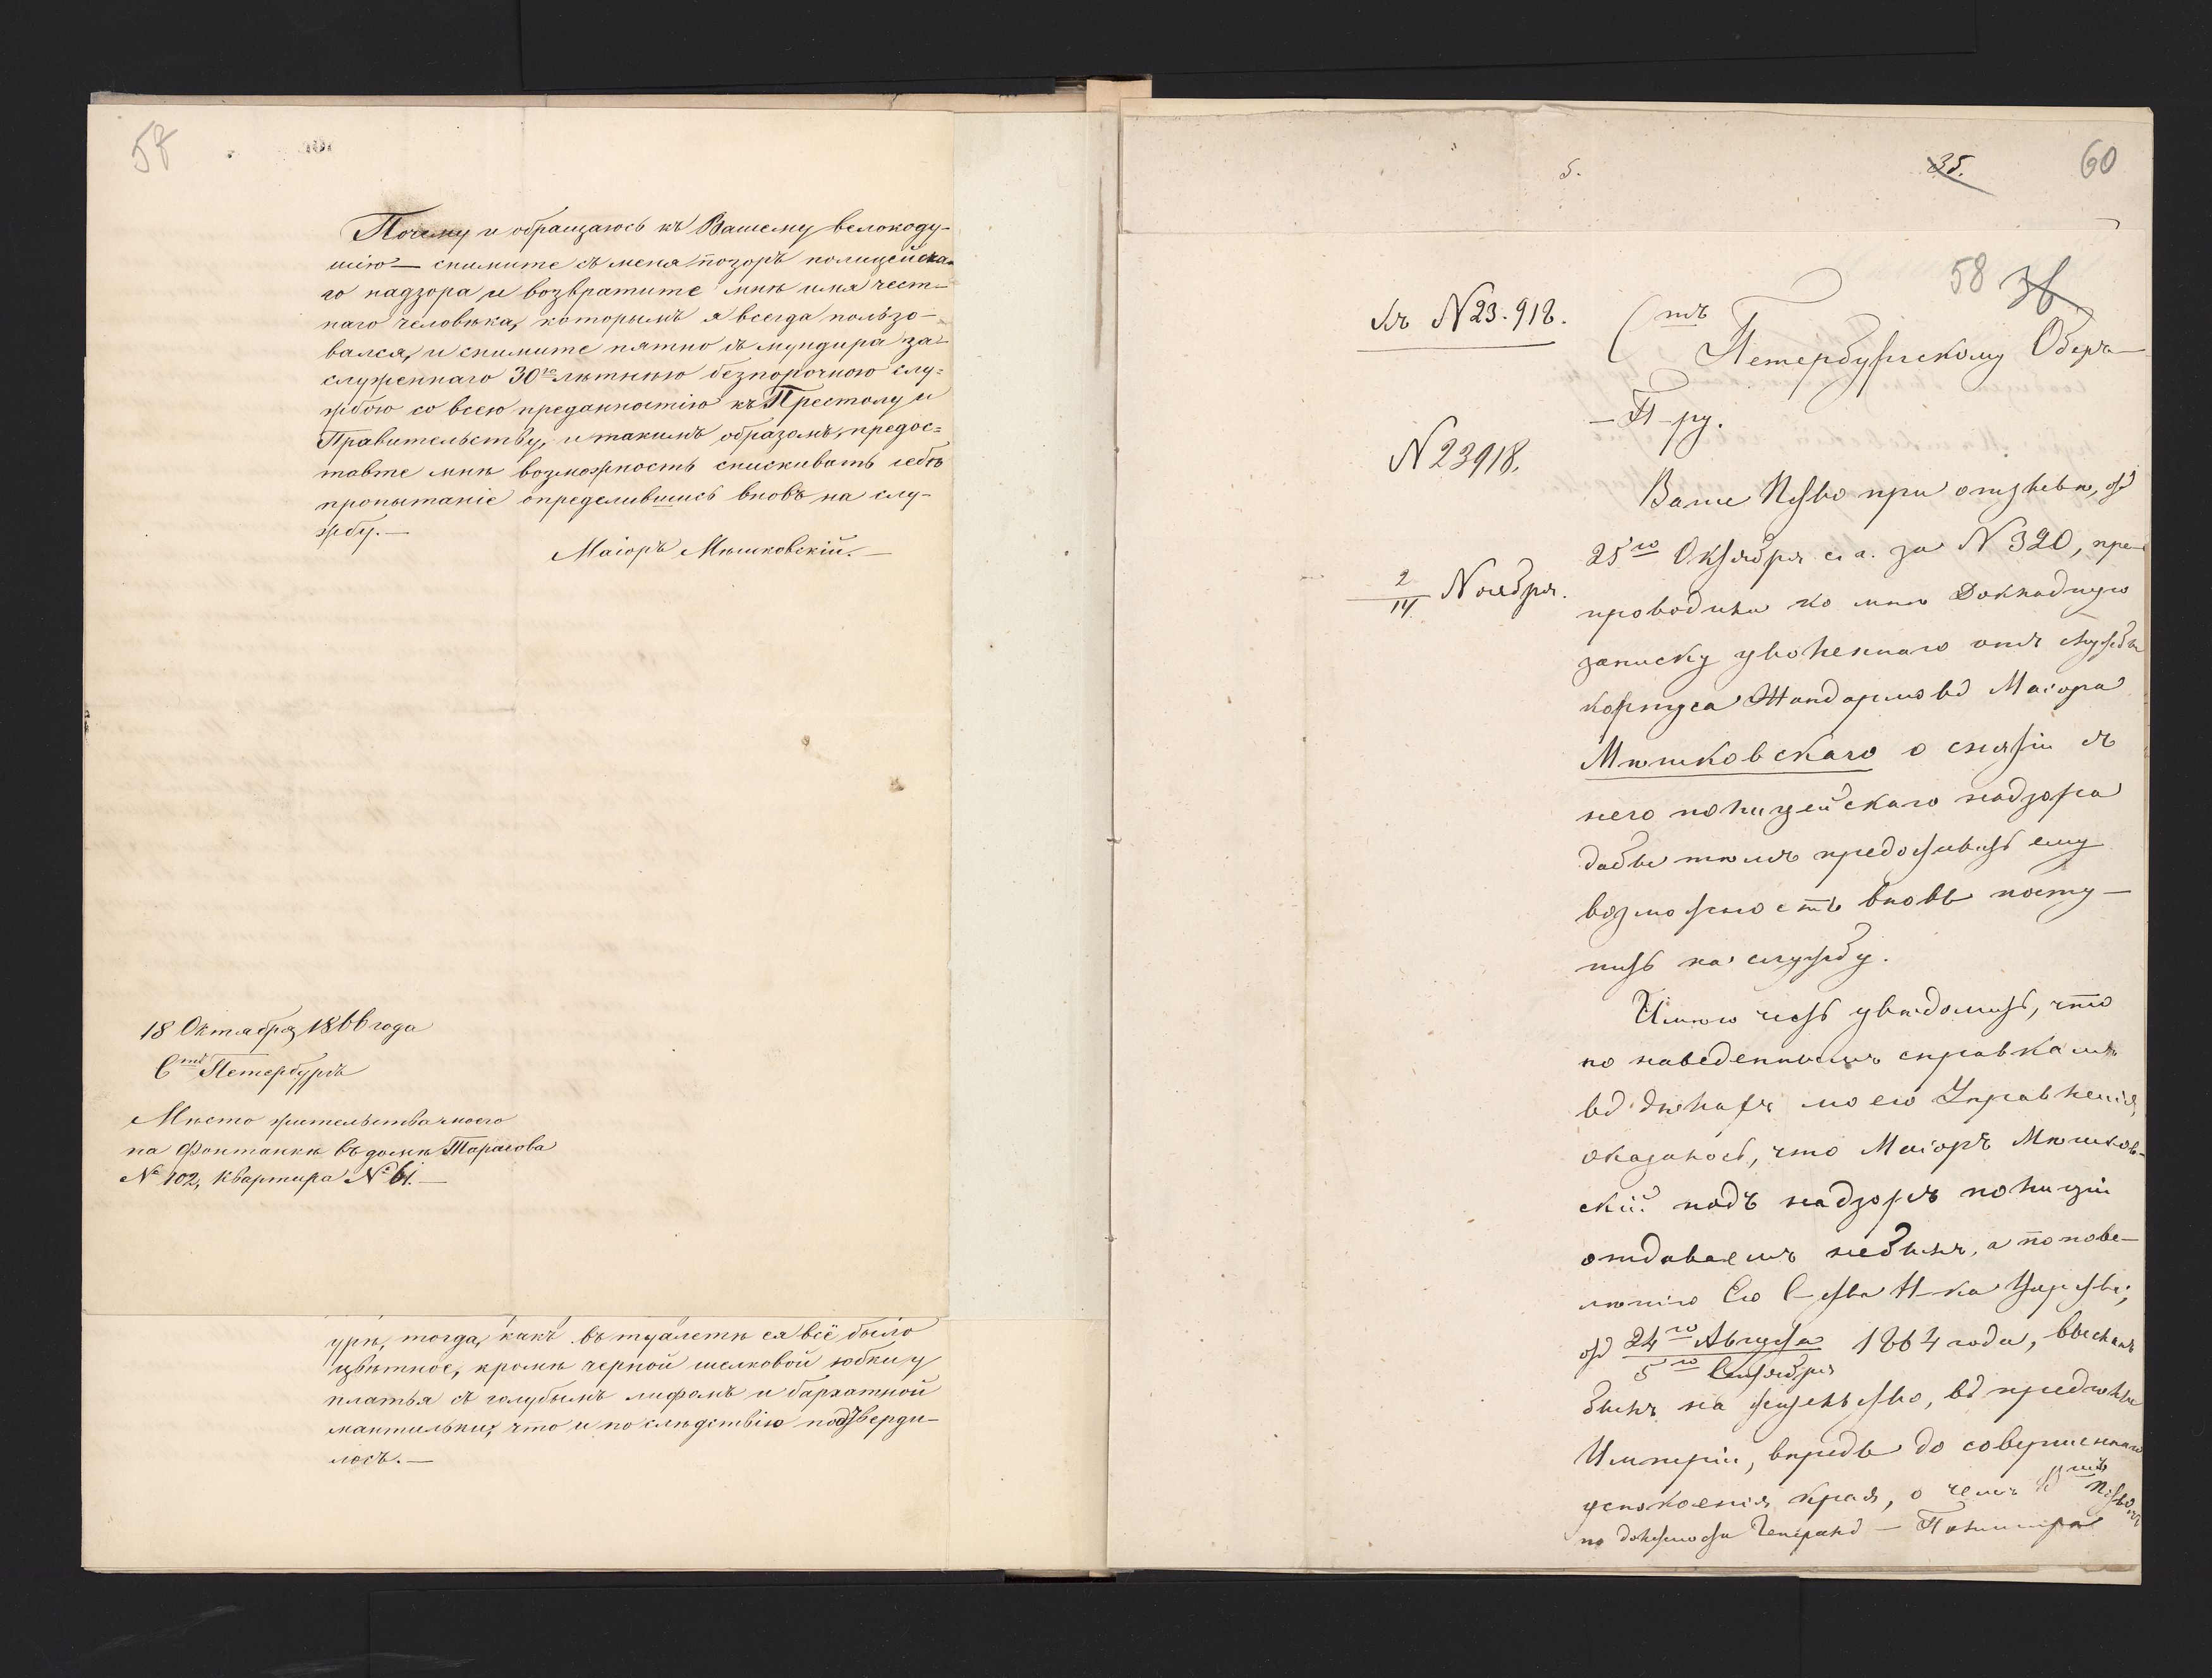 58
Почему и обращаюсь къ Вашему велокоду-
шію — снимите съ меня позоръ полицейска-
го надзора и возвратите мнѣ имя чест-
наго человѣка, которымъ я всегда пользо-
вался, и снимите пятно съ мундира за-
служеннаго 30ю лѣтнею безпорочною слу-
жбою со всею преданностію къ Престолу и
Правительству, и такимъ образомъ, предос-
тавте мнѣ возможность снискивать себѣ
пропытаніе определившись вновь на слу-
жбу.—
Маіоръ Мѣшковскій.—
18 Октября 1866 года
Стъ Петербургъ
Мѣсто жительства моего
на Фонтанкѣ въ домѣ Тарасова
№ 102, квартира №
урѣ, тогда, какъ въ туалетѣ ея всё было
цвѣтное, кромѣ черной шелковой юбки у
платья съ голубымъ лифомъ и бархатной
мантильки, что и по слѣдствію подтверди-
лось.—
5.
35.
60
58
36
Къ № 23.918.
Стъ
Петербургскому Оберъ-
-П-ру.
№ 23918.
Ваше Пство при отзывѣ, отъ
25го Октября с. г. за № 320, пре-
2/14 Ноября.
проводили ко мнѣ Докладную
записку уволеннаго отъ службы
корпуса Жандармовъ Маіора
Мѣшковскаго о снятіи съ
него полицейскаго надзора
дабы тѣмъ предоставить ему
возможность вновь посту-
пить на службу.
Имѣю честь увѣдомить, что
по наведеннымъ справкамъ
въ дѣлахъ моего Управленія,
оказалось, что Маіоръ Мѣшков-
скій подъ надзоръ полиціи
отдаваемъ небылъ, а по пове-
лѣнію Его С-ства Н-ка Царства,
отъ 24го Августа / 5го Сентября 1864 года, высланъ
былъ на жительство, въ предѣлы
Имперіи, впредь до совершеннаго
успокоенія края, о чемъ
по должности Генералъ-Полицмейстера